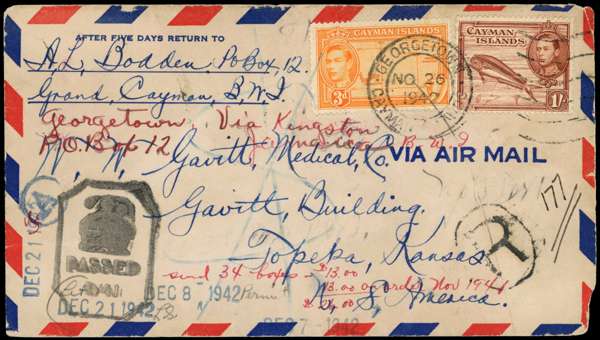 AFTER FIVE DAYS RETURN TO
A.L. Bodden. P.O Box, 12.
Grand Cayman, B.W.I
Georgetown, Via Kingston
P.O Box 12 Jamaica B.W.I
CAYMAN ISLANDS
3d
CAYMAN ISLANDS
1/-
GEORGETOWN
NO 26
1942
W. W. Gavitt, Medical, Co.
VIA AIR MAIL
Gavitt, Building.
177
Topeka, Kansas
U. S. America.
send 34 boxes
13.00
on order Nov 1941
A
T
PASSED
DEC 21
DEC 21 1942
DEC 8 - 1942
DEC 7 - 1942